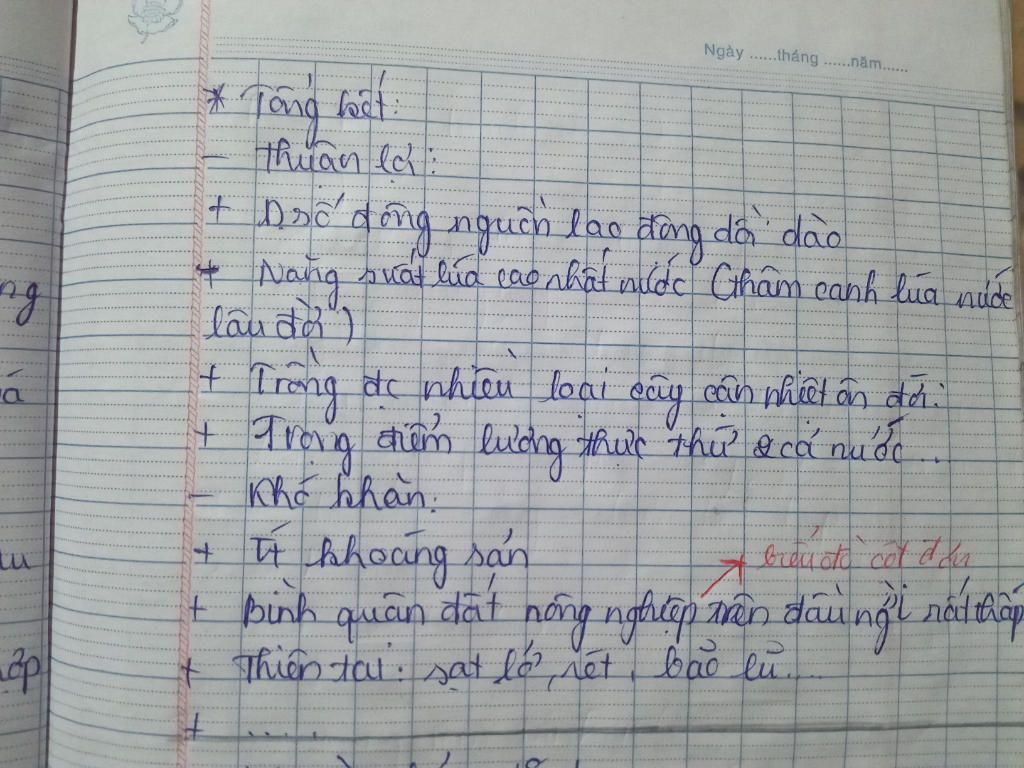 Ngày ......tháng ......năm......
* Tổng kết:
- Thuận lợi:
+ Dsố đông nguồn lao động dồi dào
+ Năng suất lúa cao nhất nước (thâm canh lúa nước
lâu đời)
+ Trồng đc nhiều loại cây cận nhiệt ôn đới.
+ Trọng điểm lương thực thứ 2 cả nước...
- Khó khăn:
+ Ít khoáng sản
biểu đồ cột đơn
+ Bình quân đất nông nghiệp trên đầu ng` rất thấp
+ Thiên tai: sạt lở, rét, bão lũ....
+ .....
ng
á
ớp